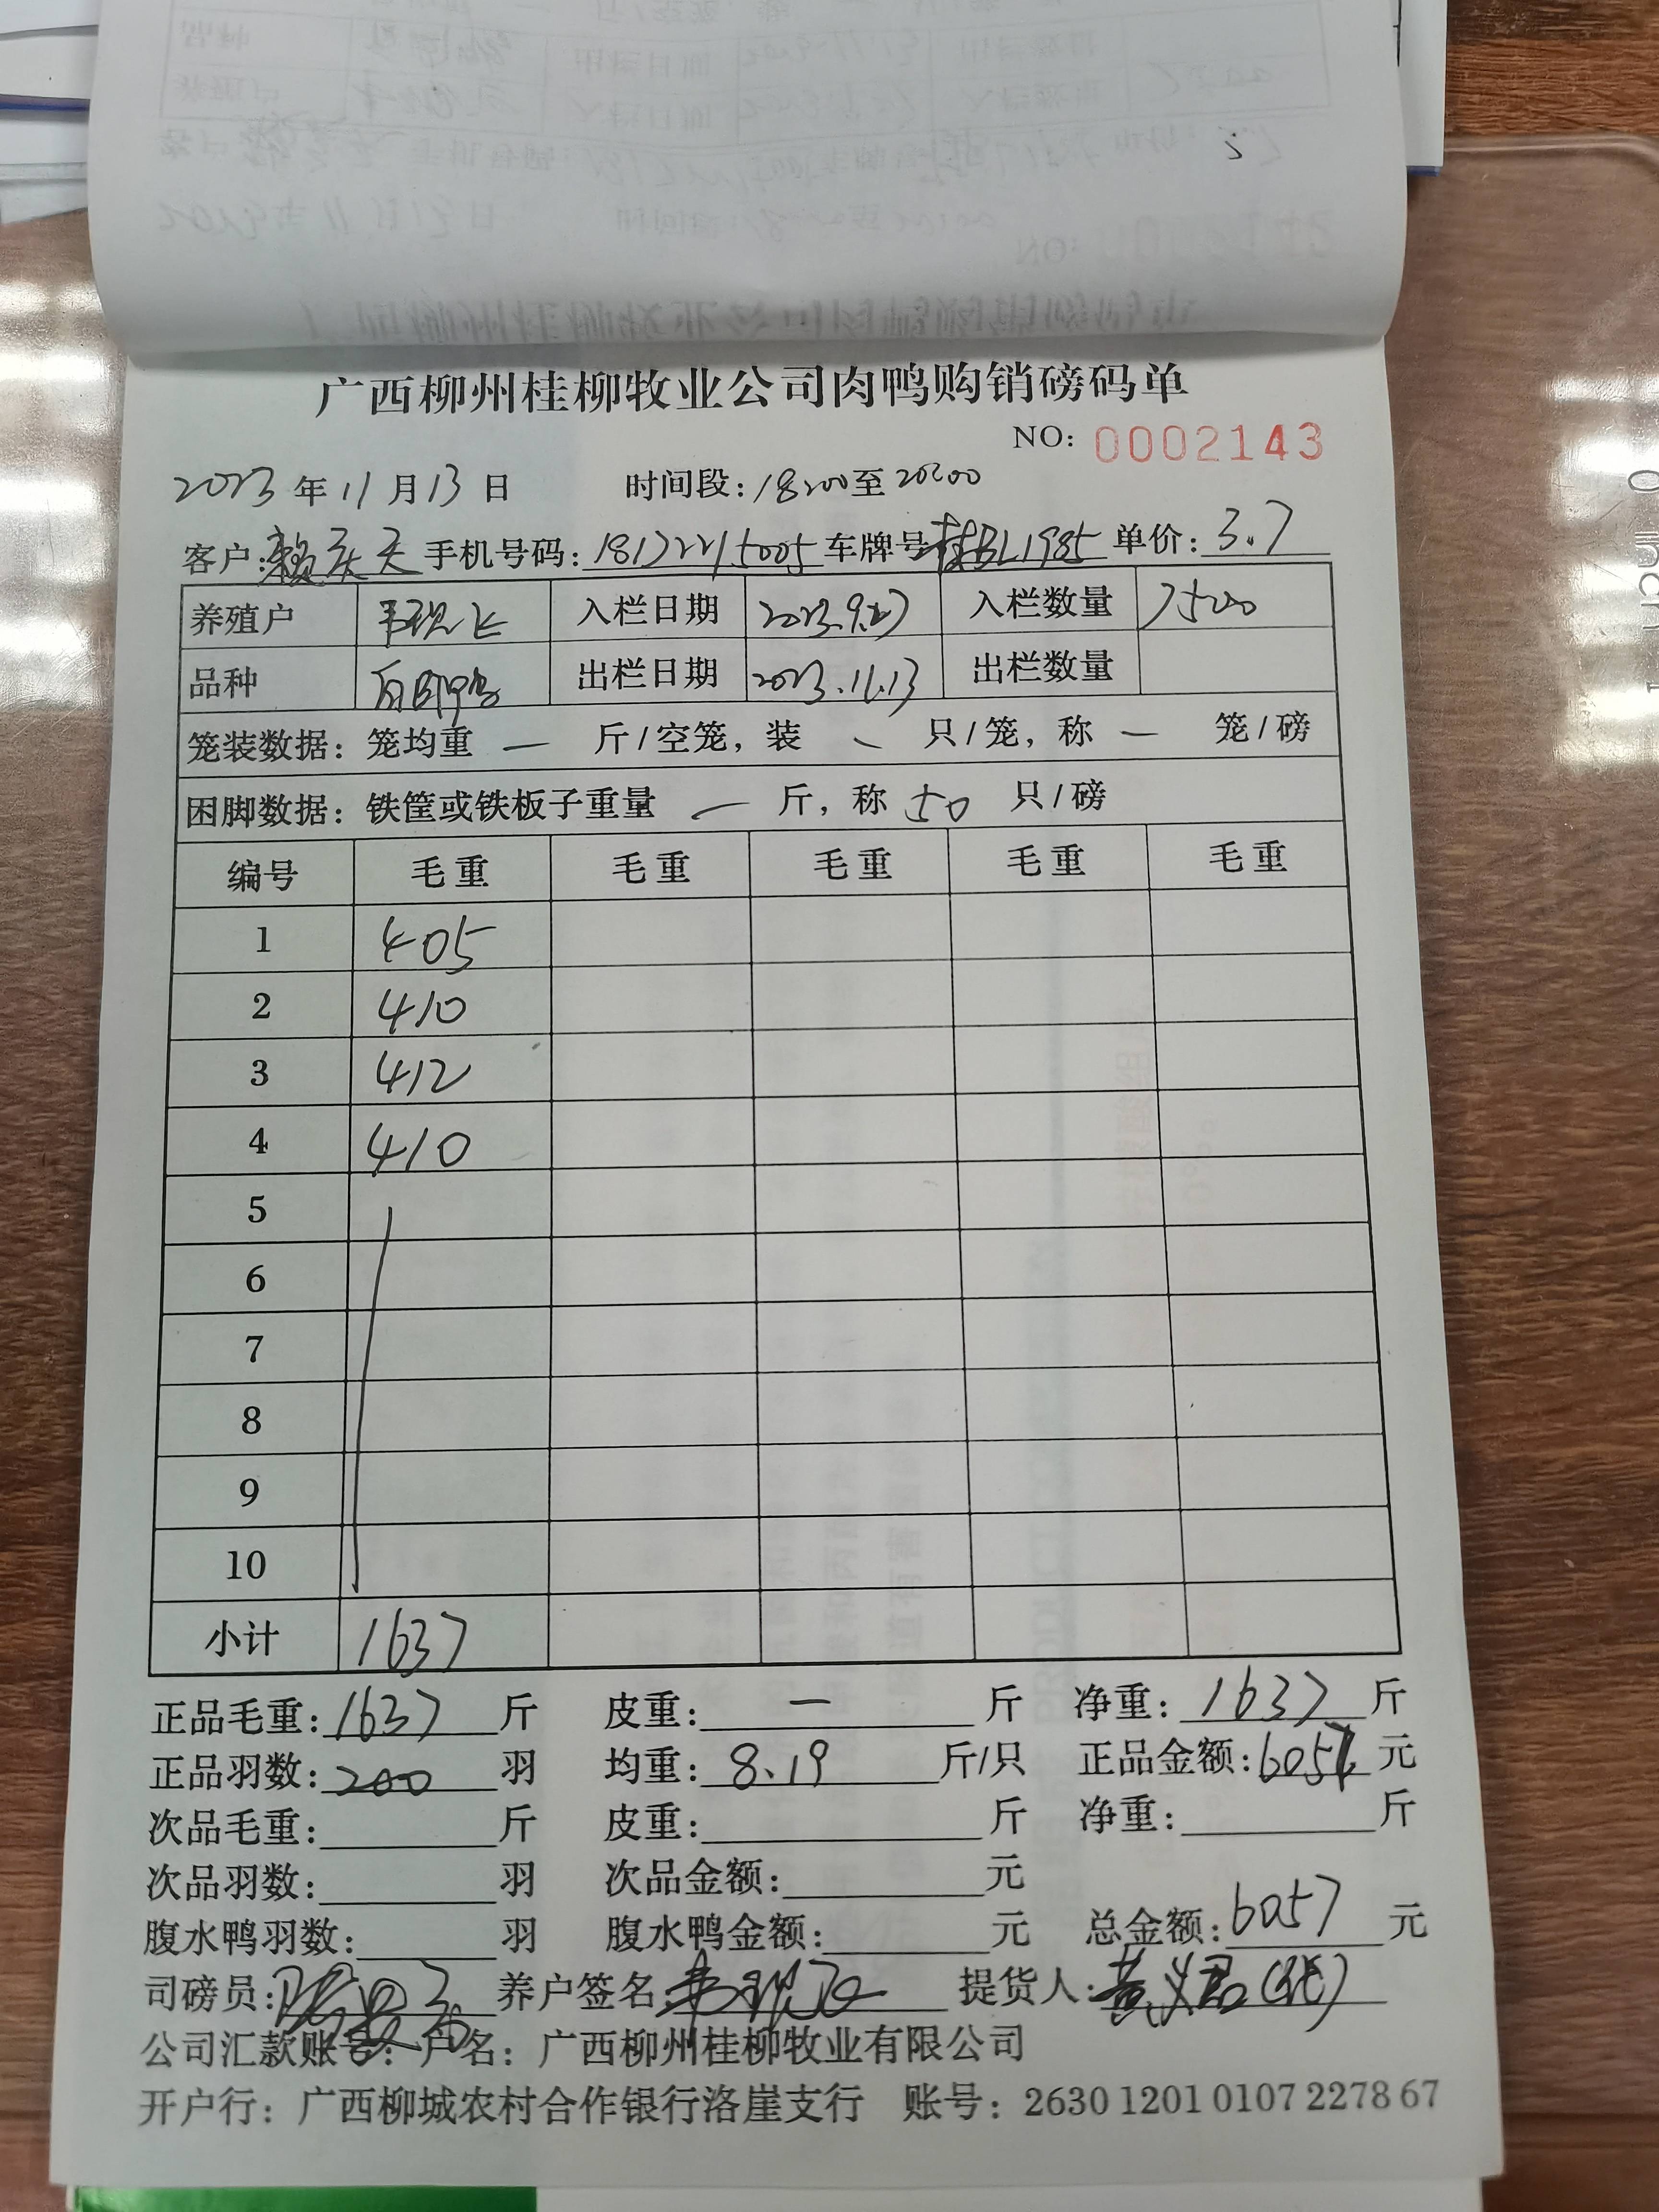 广西柳州桂柳牧业公司肉鸭购销磅码单
NO: 0002143
2023年11月13日 时间段:18:00至20:00
客户:赖庆天 手机号码:18172215005 车牌号桂BL1985 单价:3.7
养殖户 韦现飞 入栏日期 2023.9.27 入栏数量 7500
品种 出栏日期 2023.11.13 出栏数量
笼装数据:笼均重 一 斤/空笼,装 、 只/笼,称 一 笼/磅
困脚数据:铁筐或铁板子重量 一 斤,称 50 只/磅
编号 毛重 毛重 毛重 毛重 毛重
1 405
2 410
3 412
4 410
5
6
7
8
9
10
小计 1637
正品毛重:1637斤 皮重:一斤 净重:1637斤
正品羽数:200羽 均重:8.19斤/只 正品金额:6057元
次品毛重:斤 皮重:斤 净重:斤
次品羽数:羽 次品金额:元
腹水鸭羽数:羽 腹水鸭金额:元 总金额:6057元
司磅员: 养户签名:韦现飞 提货人:黄义君(代)
公司汇款账号:户名:广西柳州桂柳牧业有限公司
开户行:广西柳城农村合作银行洛崖支行 账号:2630 1201 0107 2278 67